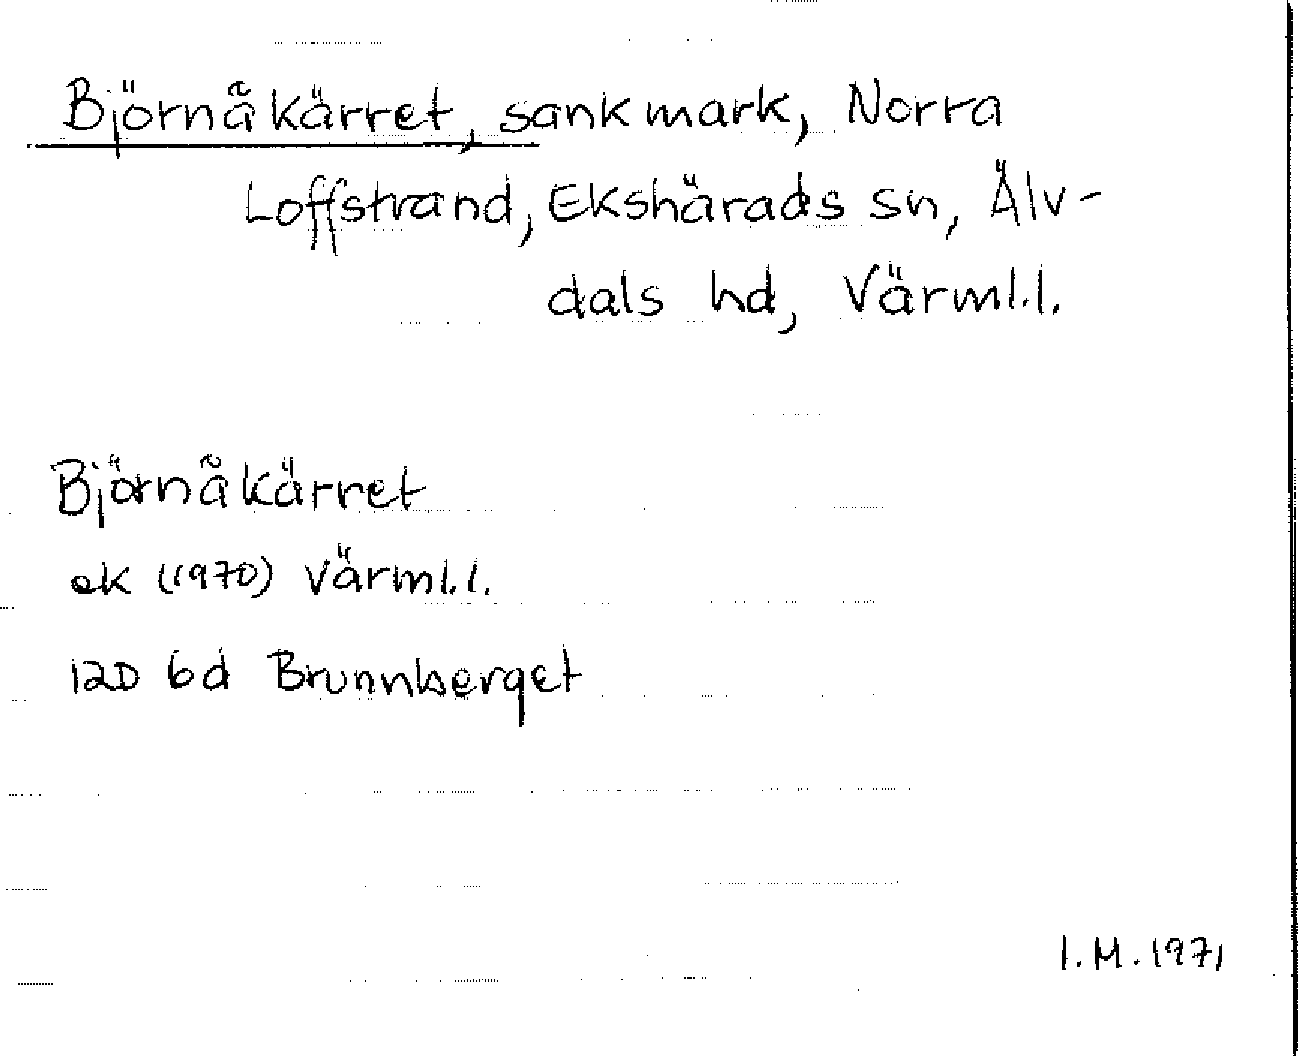 Björnåkärret, sankmark, Norra
Loffstrand, Ekshärads sn, Älv-
dals hd, Värml.l.
Björnåkärret
ek (1970) Värml.l.
12D 6d Brunnberget
I.M.1971